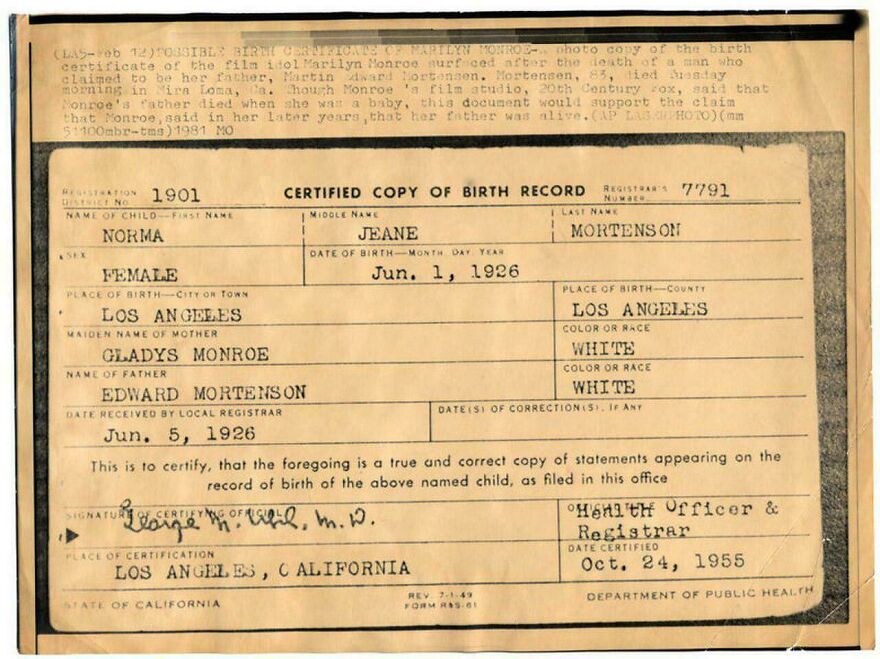 (LA5-Feb 12)POSSIBLE BIRTH CERTIFICATE OF MARILYN MONROE-A photo copy of the birth
certificate of the film idol Marilyn Monroe surfaced after the death of a man who
claimed to be her father, Martin Edward Mortensen. Mortensen, 83, died Tuesday
morning in Mira Loma, Ca. Though Monroe 's film studio, 20th Century Fox, said that
Monroe's father died when she was a baby, this document would support the claim
that Monroe,said in her later years,that her father was alive.(AP LASERPHOTO)(mm
51100mbr-tms)1981 MO
REGISTRATION DISTRICT NO. 1901 CERTIFIED COPY OF BIRTH RECORD REGISTRAR'S NUMBER 7791
NAME OF CHILD—FIRST NAME MIDDLE NAME LAST NAME
NORMA JEANE MORTENSON
SEX DATE OF BIRTH—MONTH DAY YEAR
FEMALE Jun. 1, 1926
PLACE OF BIRTH—CITY OR TOWN PLACE OF BIRTH—COUNTY
LOS ANGELES LOS ANGELES
MAIDEN NAME OF MOTHER COLOR OR RACE
GLADYS MONROE WHITE
NAME OF FATHER COLOR OR RACE
EDWARD MORTENSON WHITE
DATE RECEIVED BY LOCAL REGISTRAR DATE(S) OF CORRECTION(S), IF ANY
Jun. 5, 1926
This is to certify, that the foregoing is a true and correct copy of statements appearing on the
record of birth of the above named child, as filed in this office
SIGNATURE OF CERTIFYING OFFICIAL
George M. Uhl, M. D. Health Officer &
Registrar
PLACE OF CERTIFICATION DATE CERTIFIED
LOS ANGELES, CALIFORNIA Oct. 24, 1955
STATE OF CALIFORNIA REV. 7-1-49 DEPARTMENT OF PUBLIC HEALTH
FORM R&S-61